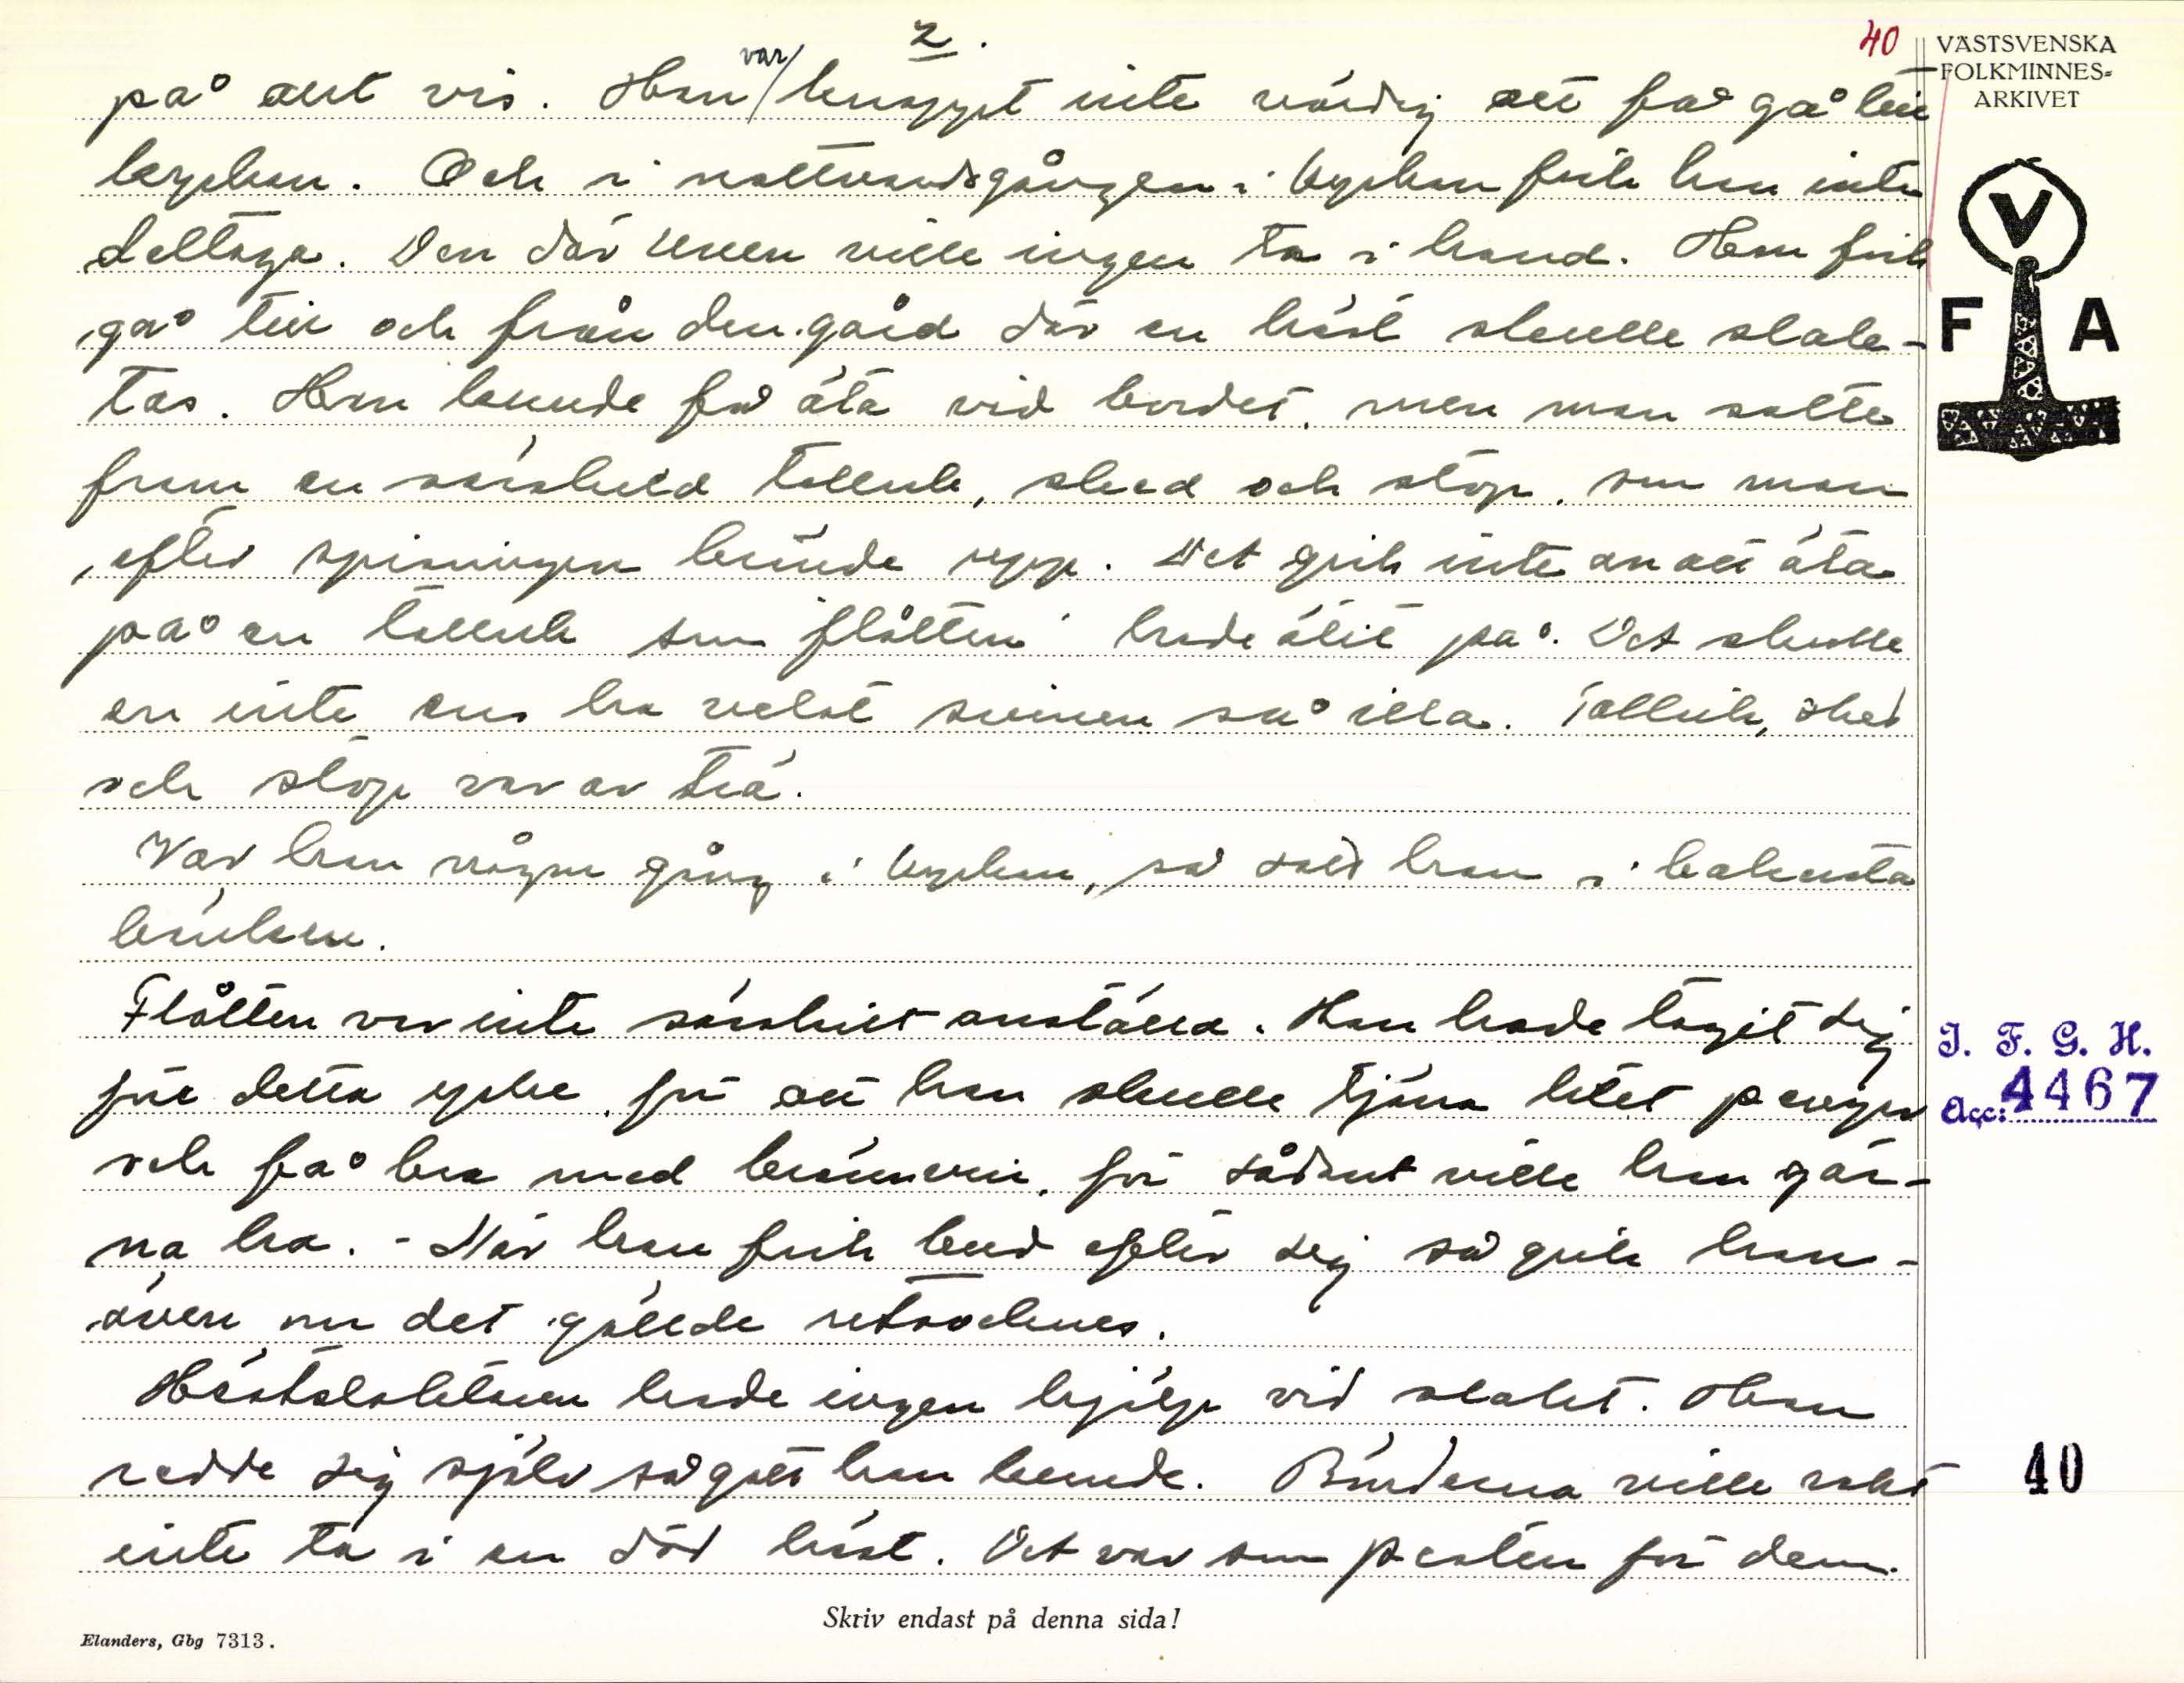 2.
40
VÄSTSVENSKA
FOLKMINNES-
ARKIVET
på allt vis. Han var knappt inte värdig att få gå till
kyrkan. Och i nattvardsgången i kyrkan fick han inte
deltaga. Den där ville ingen ta i hand. Han fick
gå till och från den gård där en häst skulle slak-
tas. Han kunde få äta vid bordet, men man satte
fram en särskild tallrik, sked och stop, som man
efter spisningen brände upp. Det gick inte an att äta
på en tallrik som "flåtten" hade ätit på. Det skulle
en inte ens ha velat svinen så illa. Tallrik, sked
och stop var av trä.
Var han någon gång i kyrkan, så satt han i bakersta
bänken.
Flåtten var inte särskilt anställd. Han hade tagit sig
för detta yrke, för att han skulle tjäna litet pengar
och få bra med brännvin, för sådant ville han gär-
na ha. - När han fick bud efter sig så gick han -
även om det gällde
Hästslaktaren hade ingen hjälp vid slakt. Han
redde sig själv så gott han kunde. Bönderna ville rakt
inte ta i en död häst. Det var som pesten för dem.
V
F A
I. F. G. H.
Acc: 4467
40
Skriv endast på denna sida!
Elanders, Gbg 7313.